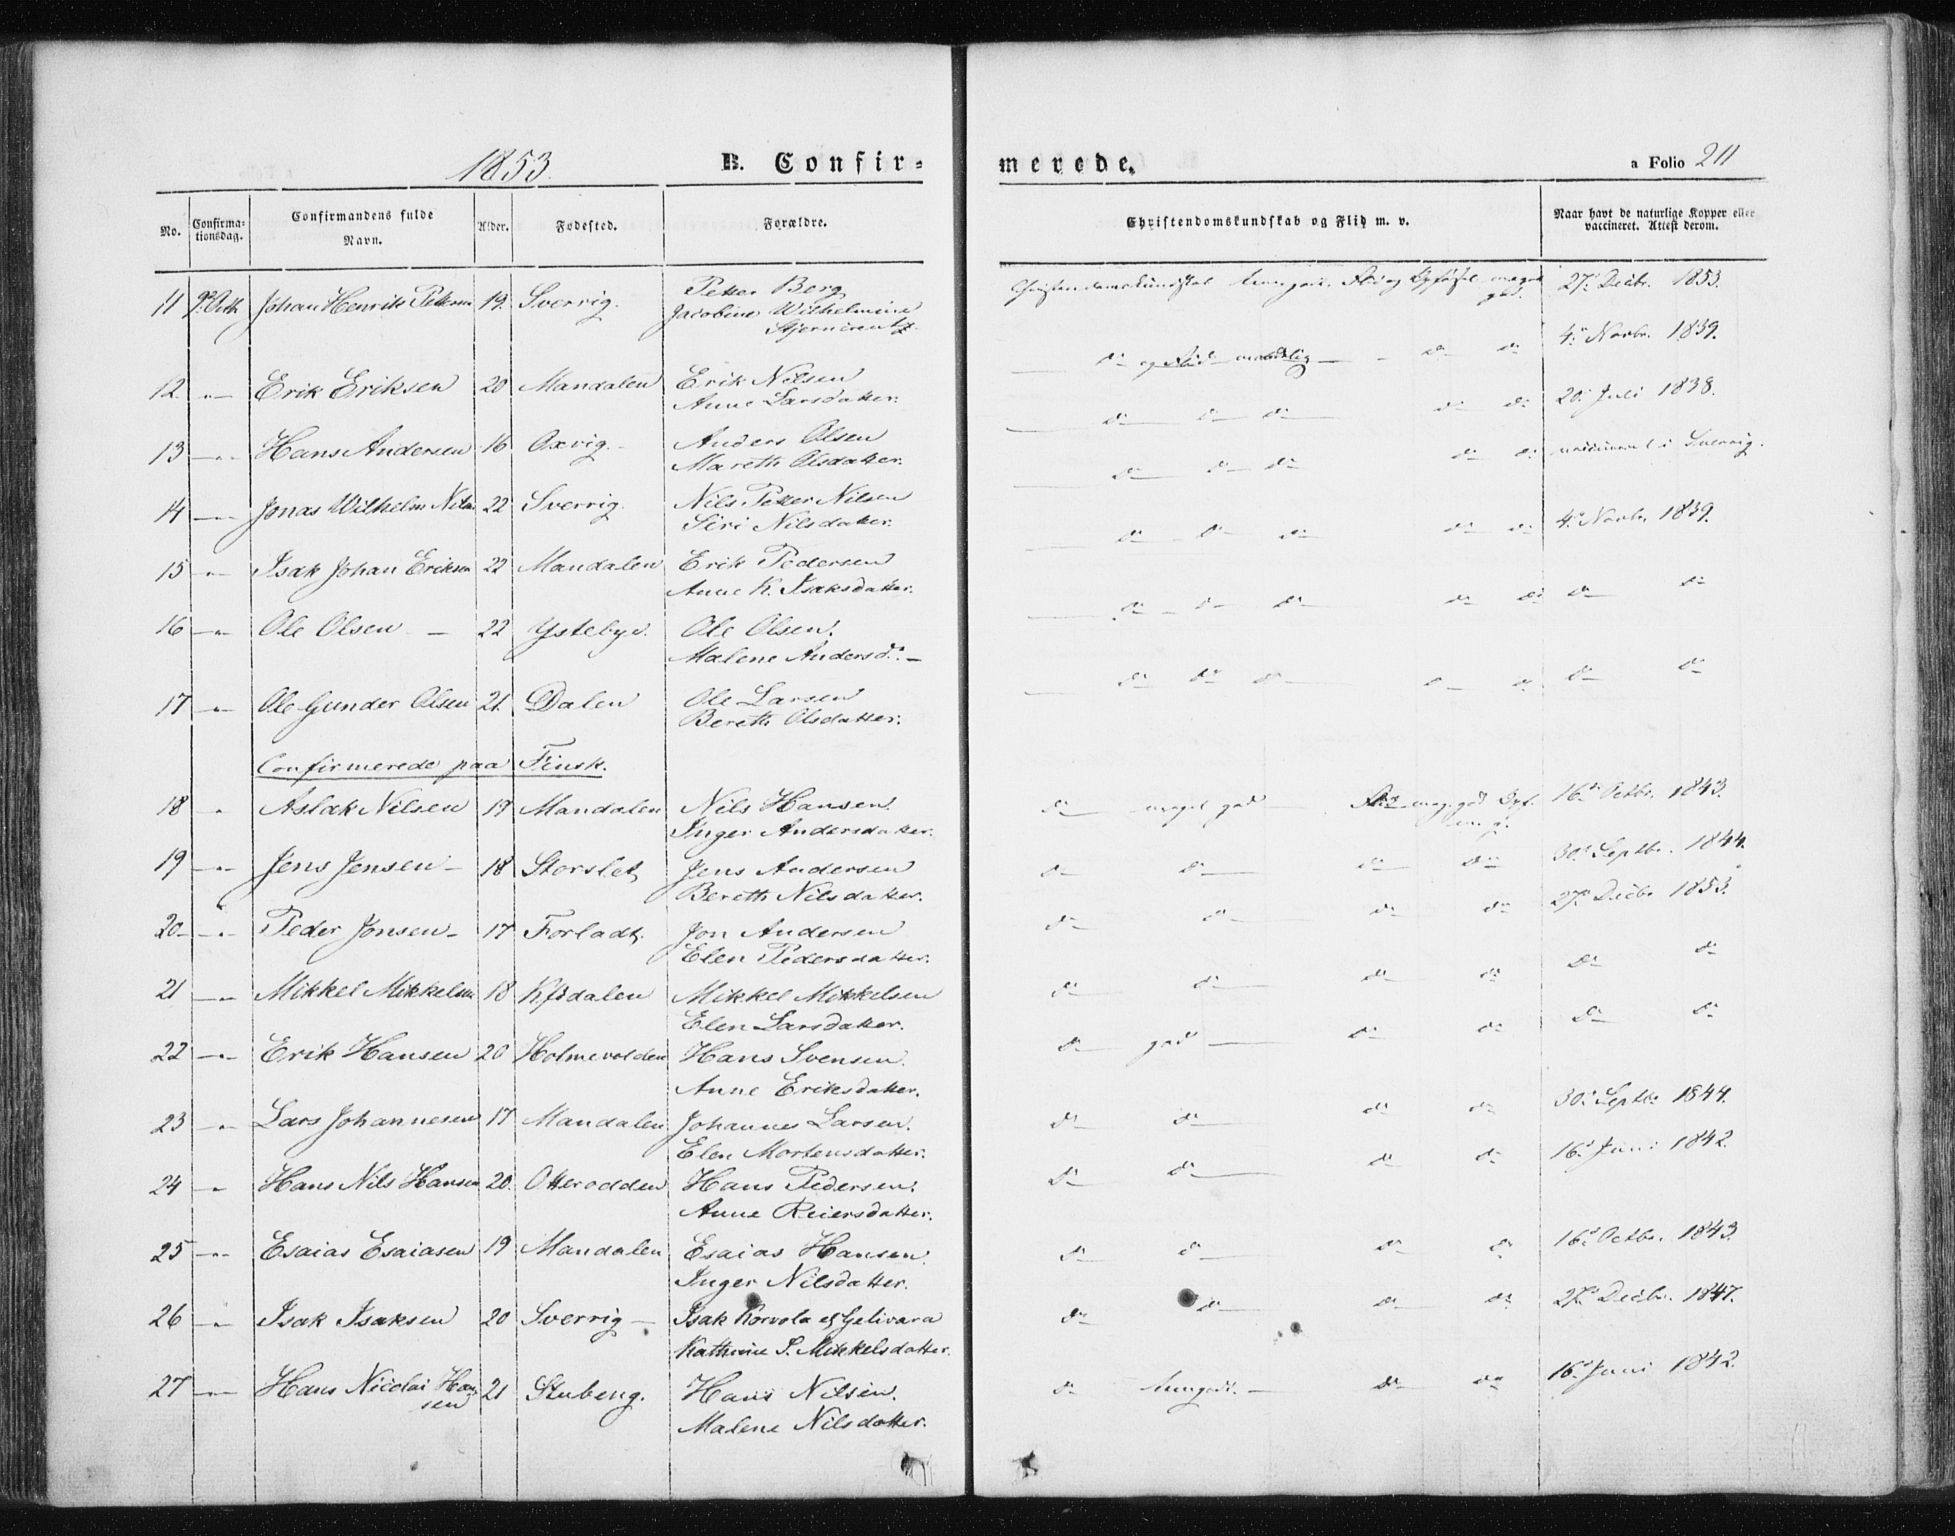 1853.
B. Confir-
merede.
a Folio 211
No.
Confirma-
tionsdag.
Confirmandens fulde
Navn.
Alder.
Fødested.
Forældre.
Christendomskundskab og Flid m. v.
Naar havt de naturlige Kopper eller
vaccineret. Attest derom.
11 Johan Henrik Pettersen 19. Sverrig. Petter Berg
Jacobine Wilhelmine
Christendomskundskab meget god. 27de Decbr. 1853.
12. -"- Erik Eriksen 20 Mandalen Erik Nilsen
Anne Larsdatter.
do og Flid do do 4de Novbr. 1839.
13 -"- Hans Andersen 16 Oxvig. Anders Olsen
Mareth Olsdatter.
do do do do do 20de Juli 1838.
14 -"- Jonas Wilhelm Nilsen 22 Sverrig. Nils Petter Nilsen
Siri Nilsdatter.
do do do do do vaccineret i Sverrig.
15 -"- Isak Johan Eriksen 22 Mandalen Erik Pedersen
Anne K. Isaksdatter.
do do do do do 4de Novbr. 1839.
16 -"- Ole Olsen - 22 Ystebye. Ole Olsen.
Malene Andersd. -
do do do do do do do
17 -"- Ole Gunder Olsen 21. Dalen Ole Larsen
Bereth Olsdatter.
do do do do do do do
Confirmerede paa Finsk.
18 " Aslak Nilsen 19 Mandalen Nils Hansen.
Inger Andersdatter.
do meget god 16de Octbr. 1843.
19 -"- Jens Jensen - 18 Storslet Jens Andersen
Bereth Nilsdatter.
do do do do 30de Septbr. 1844.
20 -"- Peder Jonsen - 17 Forladt. Jon Andersen
Elen Pedersdatter.
do do do do 27de Decbr 1853.
21 -"- Mikkel Mikkelsen 18 Kjfdalen Mikkel Mikkelsen
Elen Larsdatter.
do do do do do do
22 -"- Erik Hansen 20 Holmevolden Hans Svensen.
Anne Eriksdatter.
do god do do do do
23 -"- Lars Johannesen 17 Mandalen Johannes Larsen.
Elen Mortensdatter.
do do do do 30de Septbr 1844.
24 -"- Hans Nils Hansen 20. Otterodden Hans Pedersen.
Anne Reiersdatter.
do do do do 16de Juni 1842.
25 -"- Esaias Esaiasen 19 Mandalen Esaias Hansen.
Inger Nilsdatter.
do do do do 16de Octbr. 1843.
26 -"- Isak Isaksen 20 Sverrig - Isak Korvola af Gelivara
Kathrine S. Mikkelsdatter.
do do do do 27de Decbr. 1847.
27 -"- Hans Nicolai Han-
sen 21 Stubeng. Hans Nilsen.
Malene Nilsdatter.
do do do 16de Juni 1842.